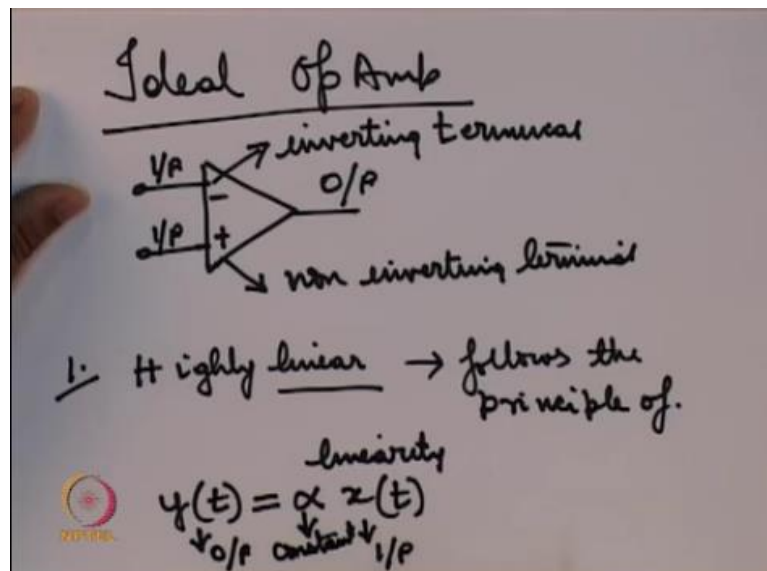 Ideal Op Amp
I/P
inverting terminal
-
O/P
I/P
+
non inverting terminal
1. Highly linear → follows the
principle of.
linearity
y(t) = α x(t)
O/P constant I/P
NPTEL